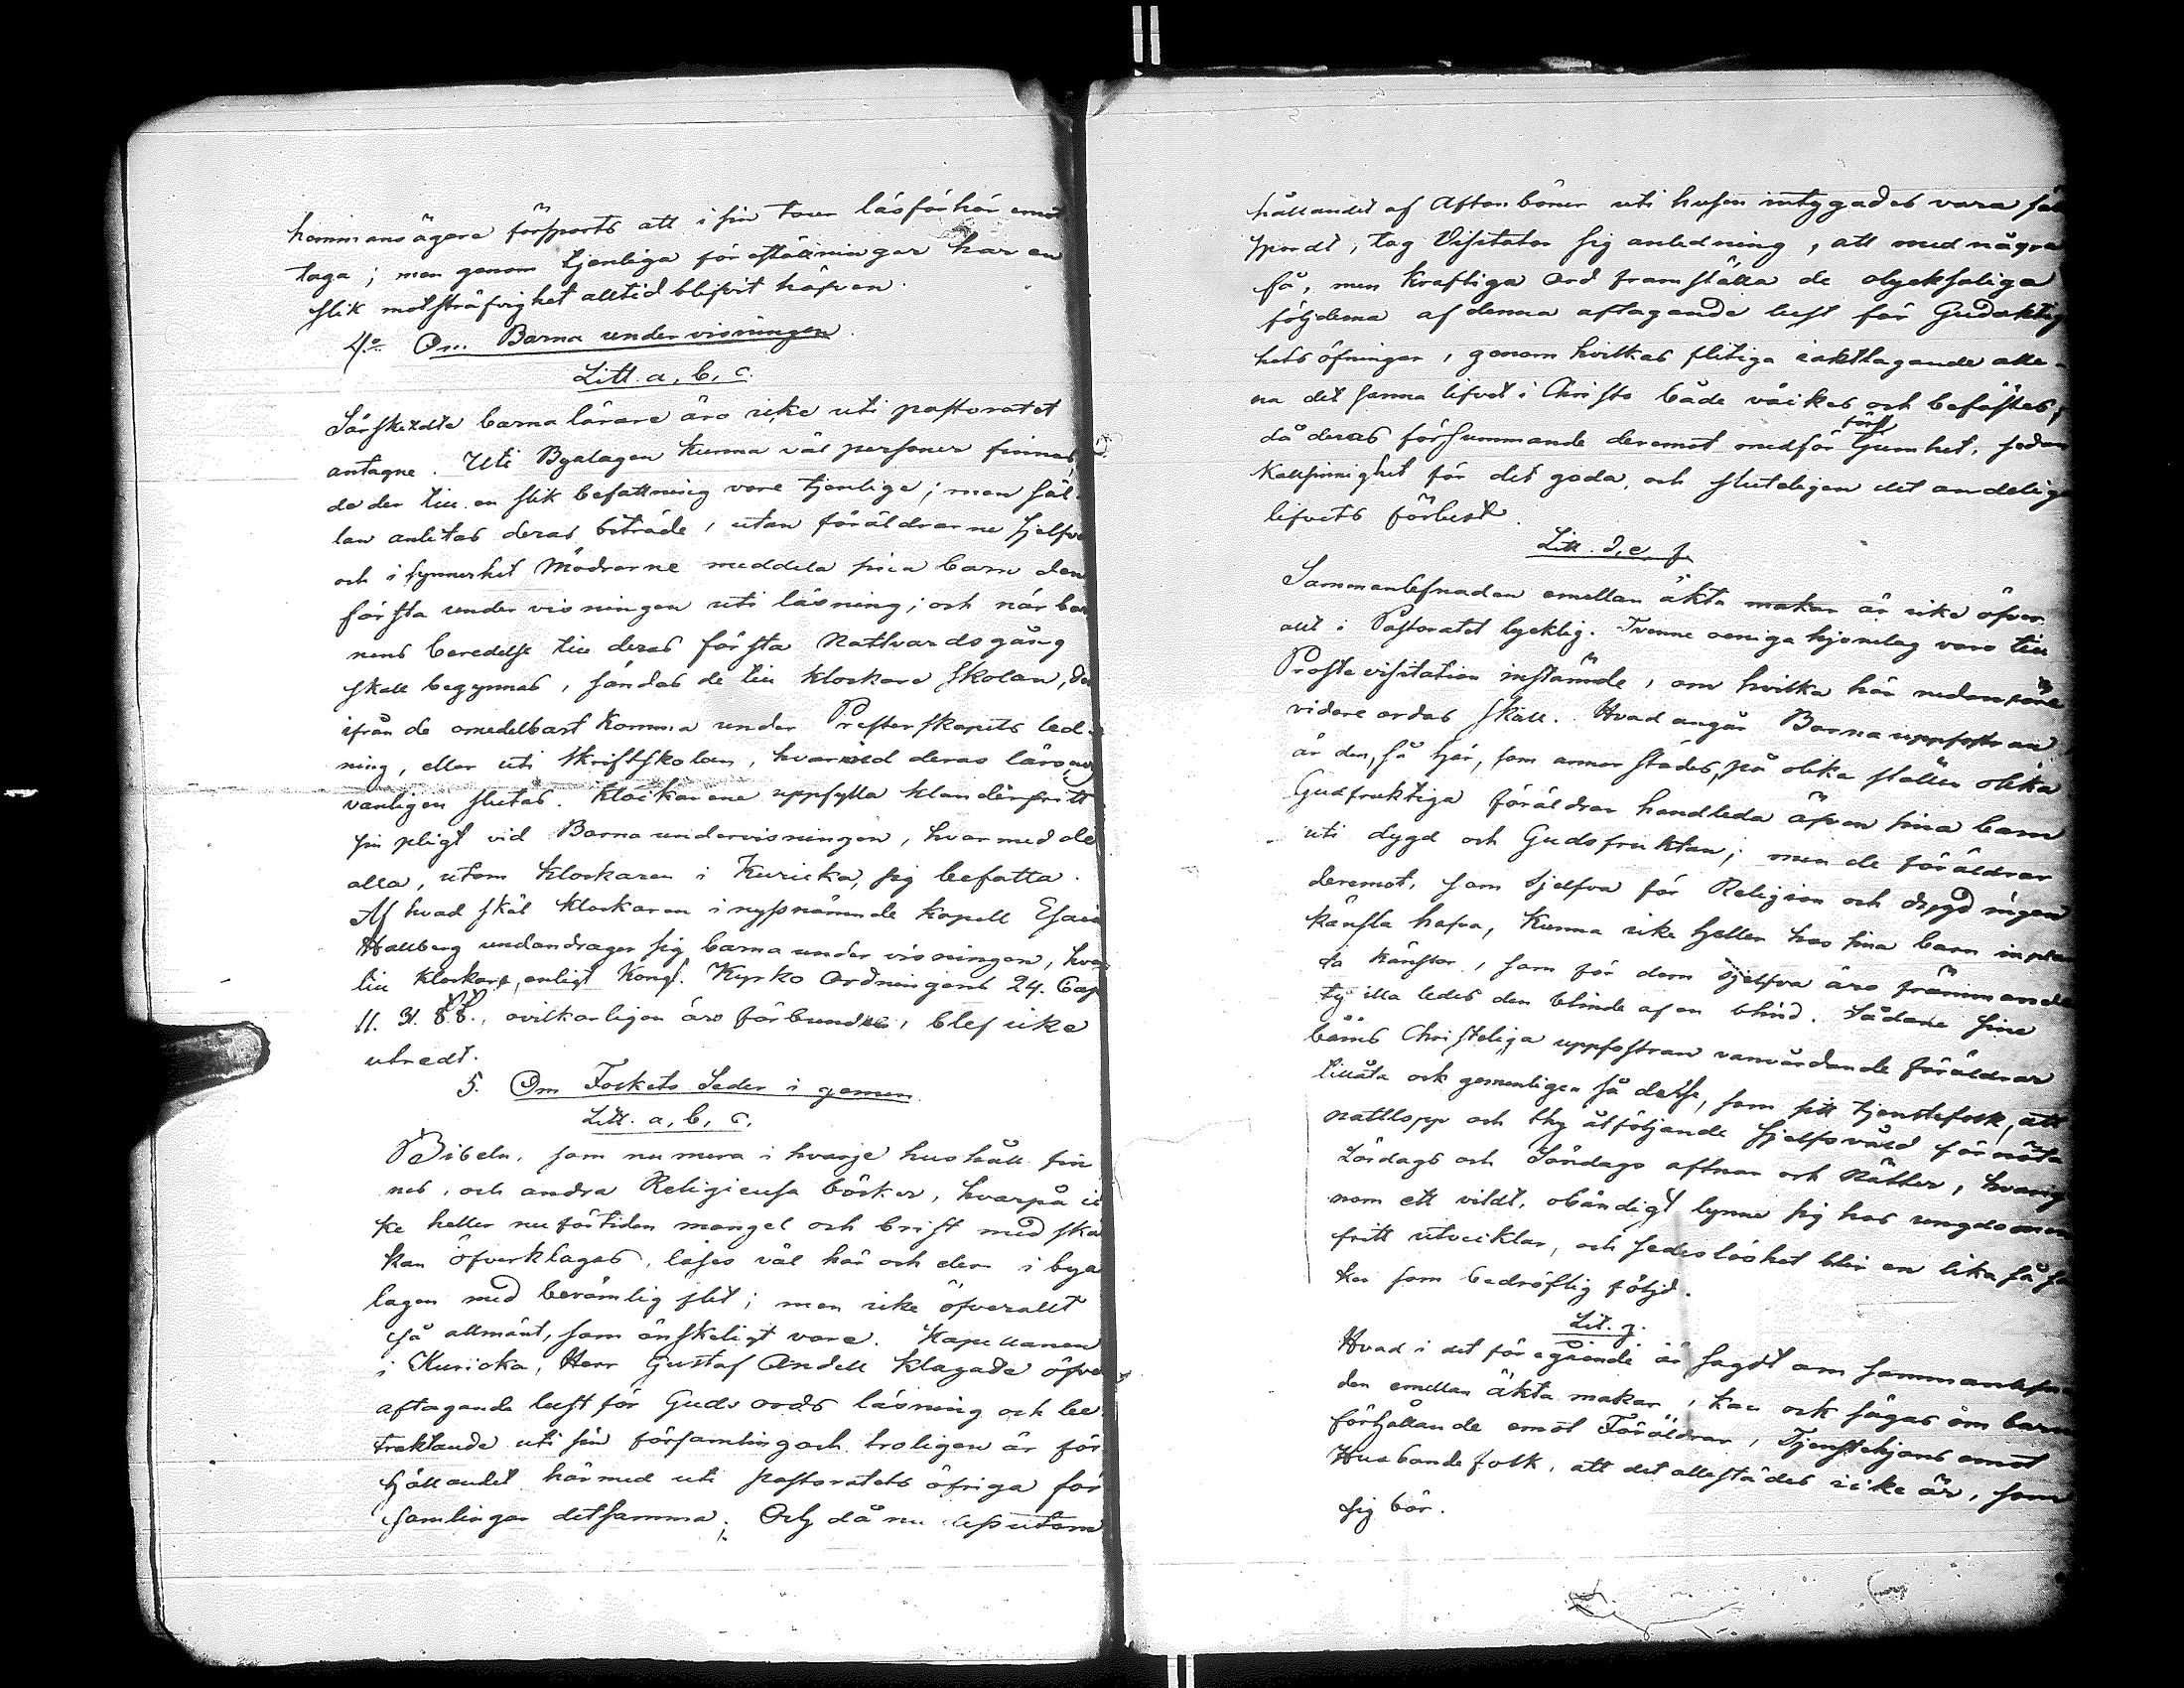 hemmansägare försports att i sin tour läsförhör emot
taga; men genom tjenliga föreställningar har en
slik motsträfvighet alltid blifvit häfven.
4:o Om Barna undervisningen.
Litt. a, b, c.
Särskildte barnalärare äro icke uti pastoratet
antagne. Uti Byalagen kunna väl personer finnas,
de der till en slik befattning vore tjenlige; men säl-
lan anlitas deras biträde, utan föräldrarne sjelfve
och i synnerhet Mödrarne meddela sina barn den
första undervisningen uti läsning; och när bar
nens beredelse till deras första Nattvardsgång
skall begynnas, sändas de till klockare skolan, der
ifrån de omedelbart komma under Presterskapets led-
ning, eller uti Skriftskolan, hvarmed deras
vanligen slutas. Klockarene uppfylla klanderfritt
sin pligt vid Barnaundervisningen, hvarmed de
alla, utom klockaren i Kuricka, sig befatta.
Af hvad skäl klockaren i nyssnämnde kapell Esaias
Hallberg undandrager sig barnaundervisningen, hvar
till klockare, enligt Kongl. Kyrko Ordningens 24. Cap
11. 31. §§., ovilkorligen äro förbundne, blef icke
utredt.
5. Om Folkets Seder i gemen.
Litt. a, b, c.
Bibeln, som numera i hvarje hushåll fin
nes, och andra Religieusa böcker, hvarpå ic
ke heller nu för tiden mangel och brist med skäl
kan öfverklagas, läses väl här och der i bya
lagen med berömlig flit; men icke öfverallt
så allmänt, som önskeligt vore. Kapellanen
i Kuricka, Herr Gustaf Andell klagade öfver
aftagande lust för Guds ords läsning och be
traktande uti sin församling och troligen är för
hållandet härmed uti pastoratets öfriga för
samlingar detsamma. Och då nu dessutom
hållandet af Aftonböner uti husen intygades vara säll
spordt, tog Visitator sig anledning, att med några
få, men kraftiga ord framställa de olycksaliga
följderna af denna aftagande lust för Gudaktig
hets öfningar, genom hvilkas flitiga iakttagande alle-
na det sanna lifvet i Christo både väckes och befästes,
då deras försummande deremot medför först ljumhet, sedan
kallsinnighet för det goda, och slutligen det andeliga
lifvets förlust.
Litt. d, e, f.
Sammanlefnaden emellan äkta makar är icke öfver
allt i Pastoratet lycklig. Tvenne oeniga hjonelag voro till
Prostevisitation instämde, om hvilka här nedanföre
vidare ordas skall. Hvad angår Barnauppfostran
är den, så här, som annorstädes, på olika ställen olika
Gudfruktiga föräldrar handleda äfven sina barn
uti dygd och Gudsfruktan; men de föräldrar
deremot, som sjelfva för Religion och dygd ingen
känsla hafva, kunna icke heller hos sina barn inplan
ta känslor, som för dem sjelfva äro främmande
ty illa ledes den blinde af en blind. Sådane sine
barns Christeliga uppfostran vanvårdande föräldrar
tillåta ock gemenligen så desse, som sitt tjenstefolk, att
nattlopp och thy åtföljande sjelfsvåld förnöta
Lördags och Söndags aftnar och Nätter, hvarige
nom ett vildt, obändigt lynne sig hos ungdomen
fritt utvecklar, och sedeslöshet blir en lika så sä
ker som bedröflig följd.
Lit. g.
Hvad i det föregående är sagdt om sammanlefna
den emellan äkta makar, kan ock sägas om barns
förhållande emot Föräldrar, Tjenstehjons emot
Husbondefolk, att det allestädes icke är, som
sig bör.